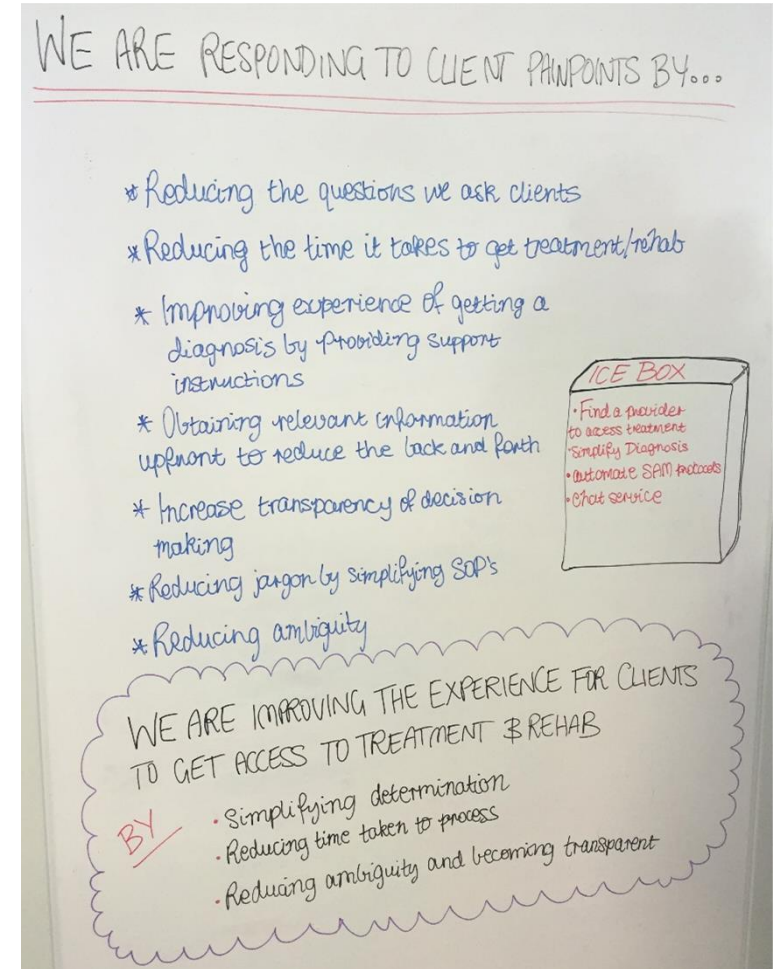 WE ARE RESPONDING TO CLIENT PAINPOINTS BY...
* Reducing the questions we ask clients
* Reducing the time it takes to get treatment/rehab
* Improving experience of getting a
diagnosis by providing support
instructions
* Obtaining relevant information
upfront to reduce the back and forth
* Increase transparency of decision
making
* Reducing jargon by simplifying SOP's
* Reducing ambiguity
ICE BOX
• Find a provider
to access treatment
• Simplify Diagnosis
• automate SAM protocols
• Chat service
WE ARE IMPROVING THE EXPERIENCE FOR CLIENTS
TO GET ACCESS TO TREATMENT & REHAB
BY
• Simplifying determination
• Reducing time taken to process
• Reducing ambiguity and becoming transparent